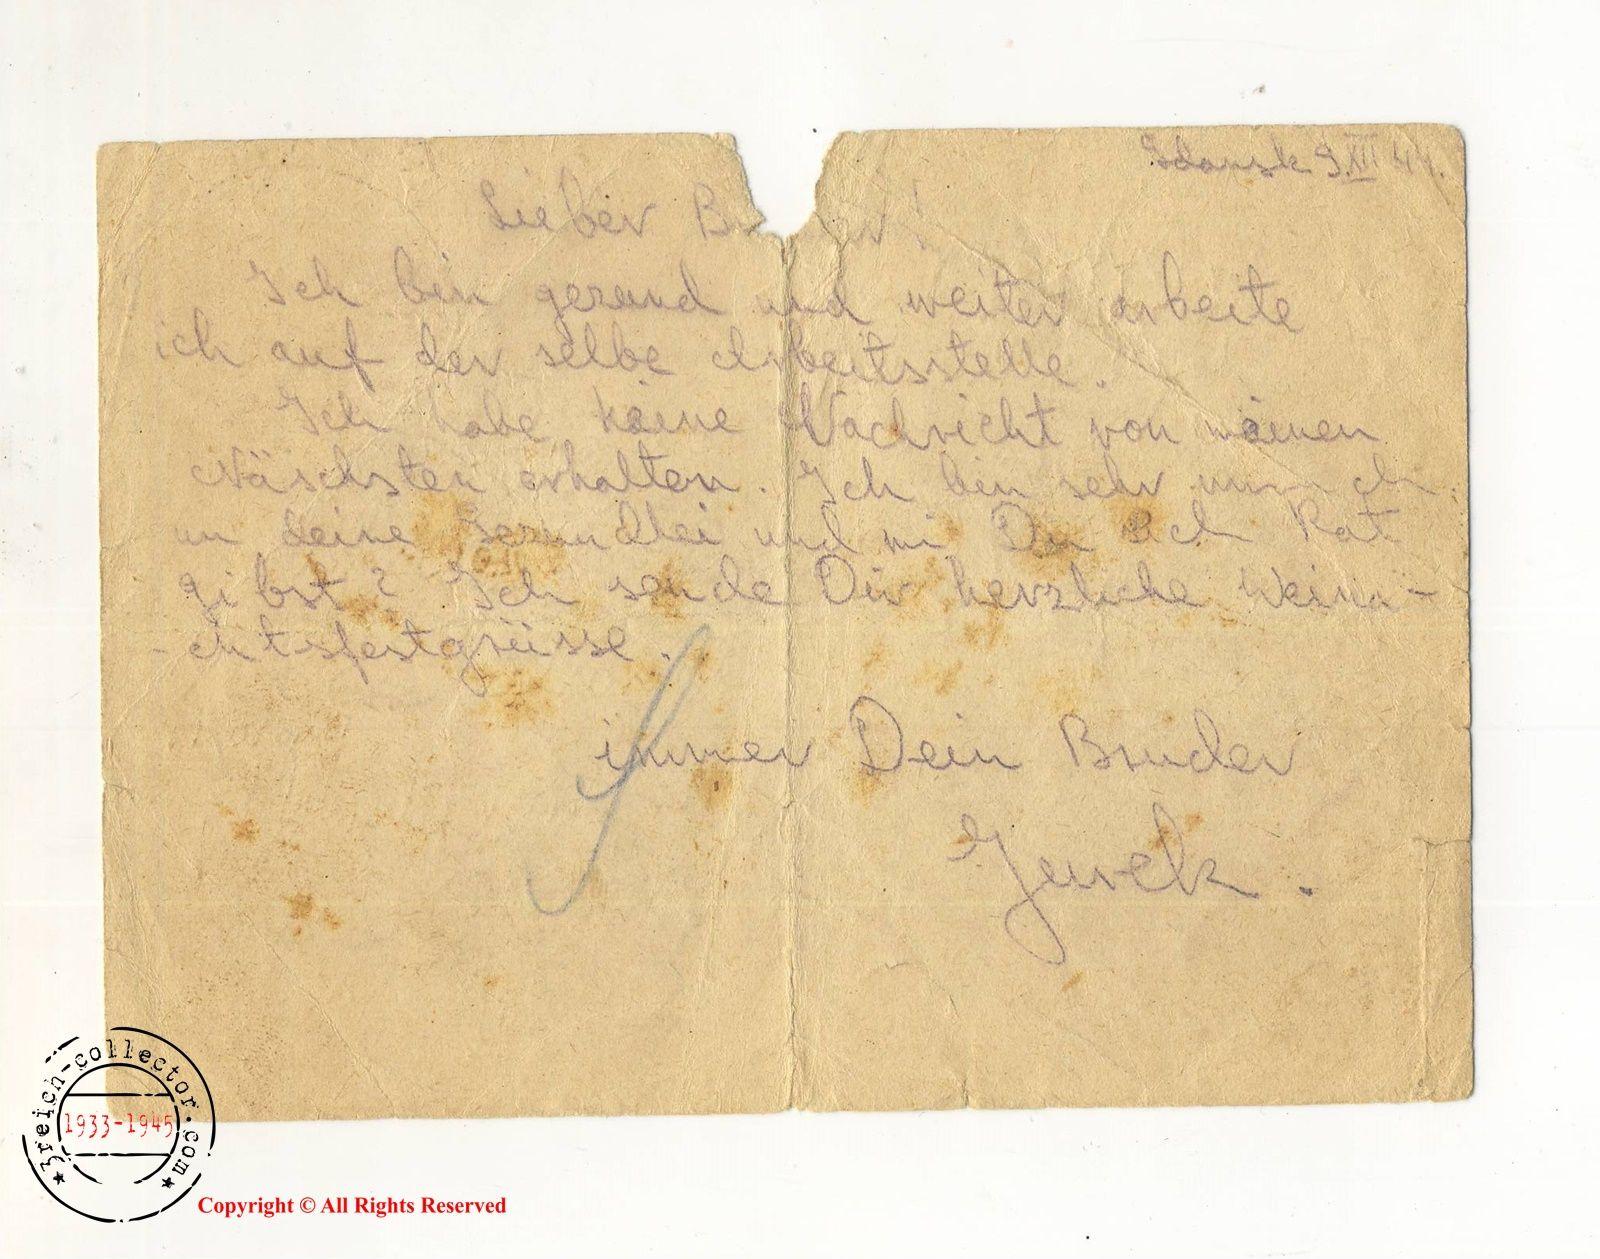 Gdansk 9.XII 44.
Lieber B er!
Ich bin gesund und weiter arbeite
ich auf der selbe Arbeitsstelle.
Ich habe keine Nachricht von meinen
Näschsten erhalten. Ich bin sehr
um deine Gesundhei und wi Du sich Rat
gibst? Ich sende Dir herzliche Weina-
-chtsfestgrüsse.
immer Dein Bruder
Jurek.
3reich-collector.com
1933-1945
Copyright © All Rights Reserved